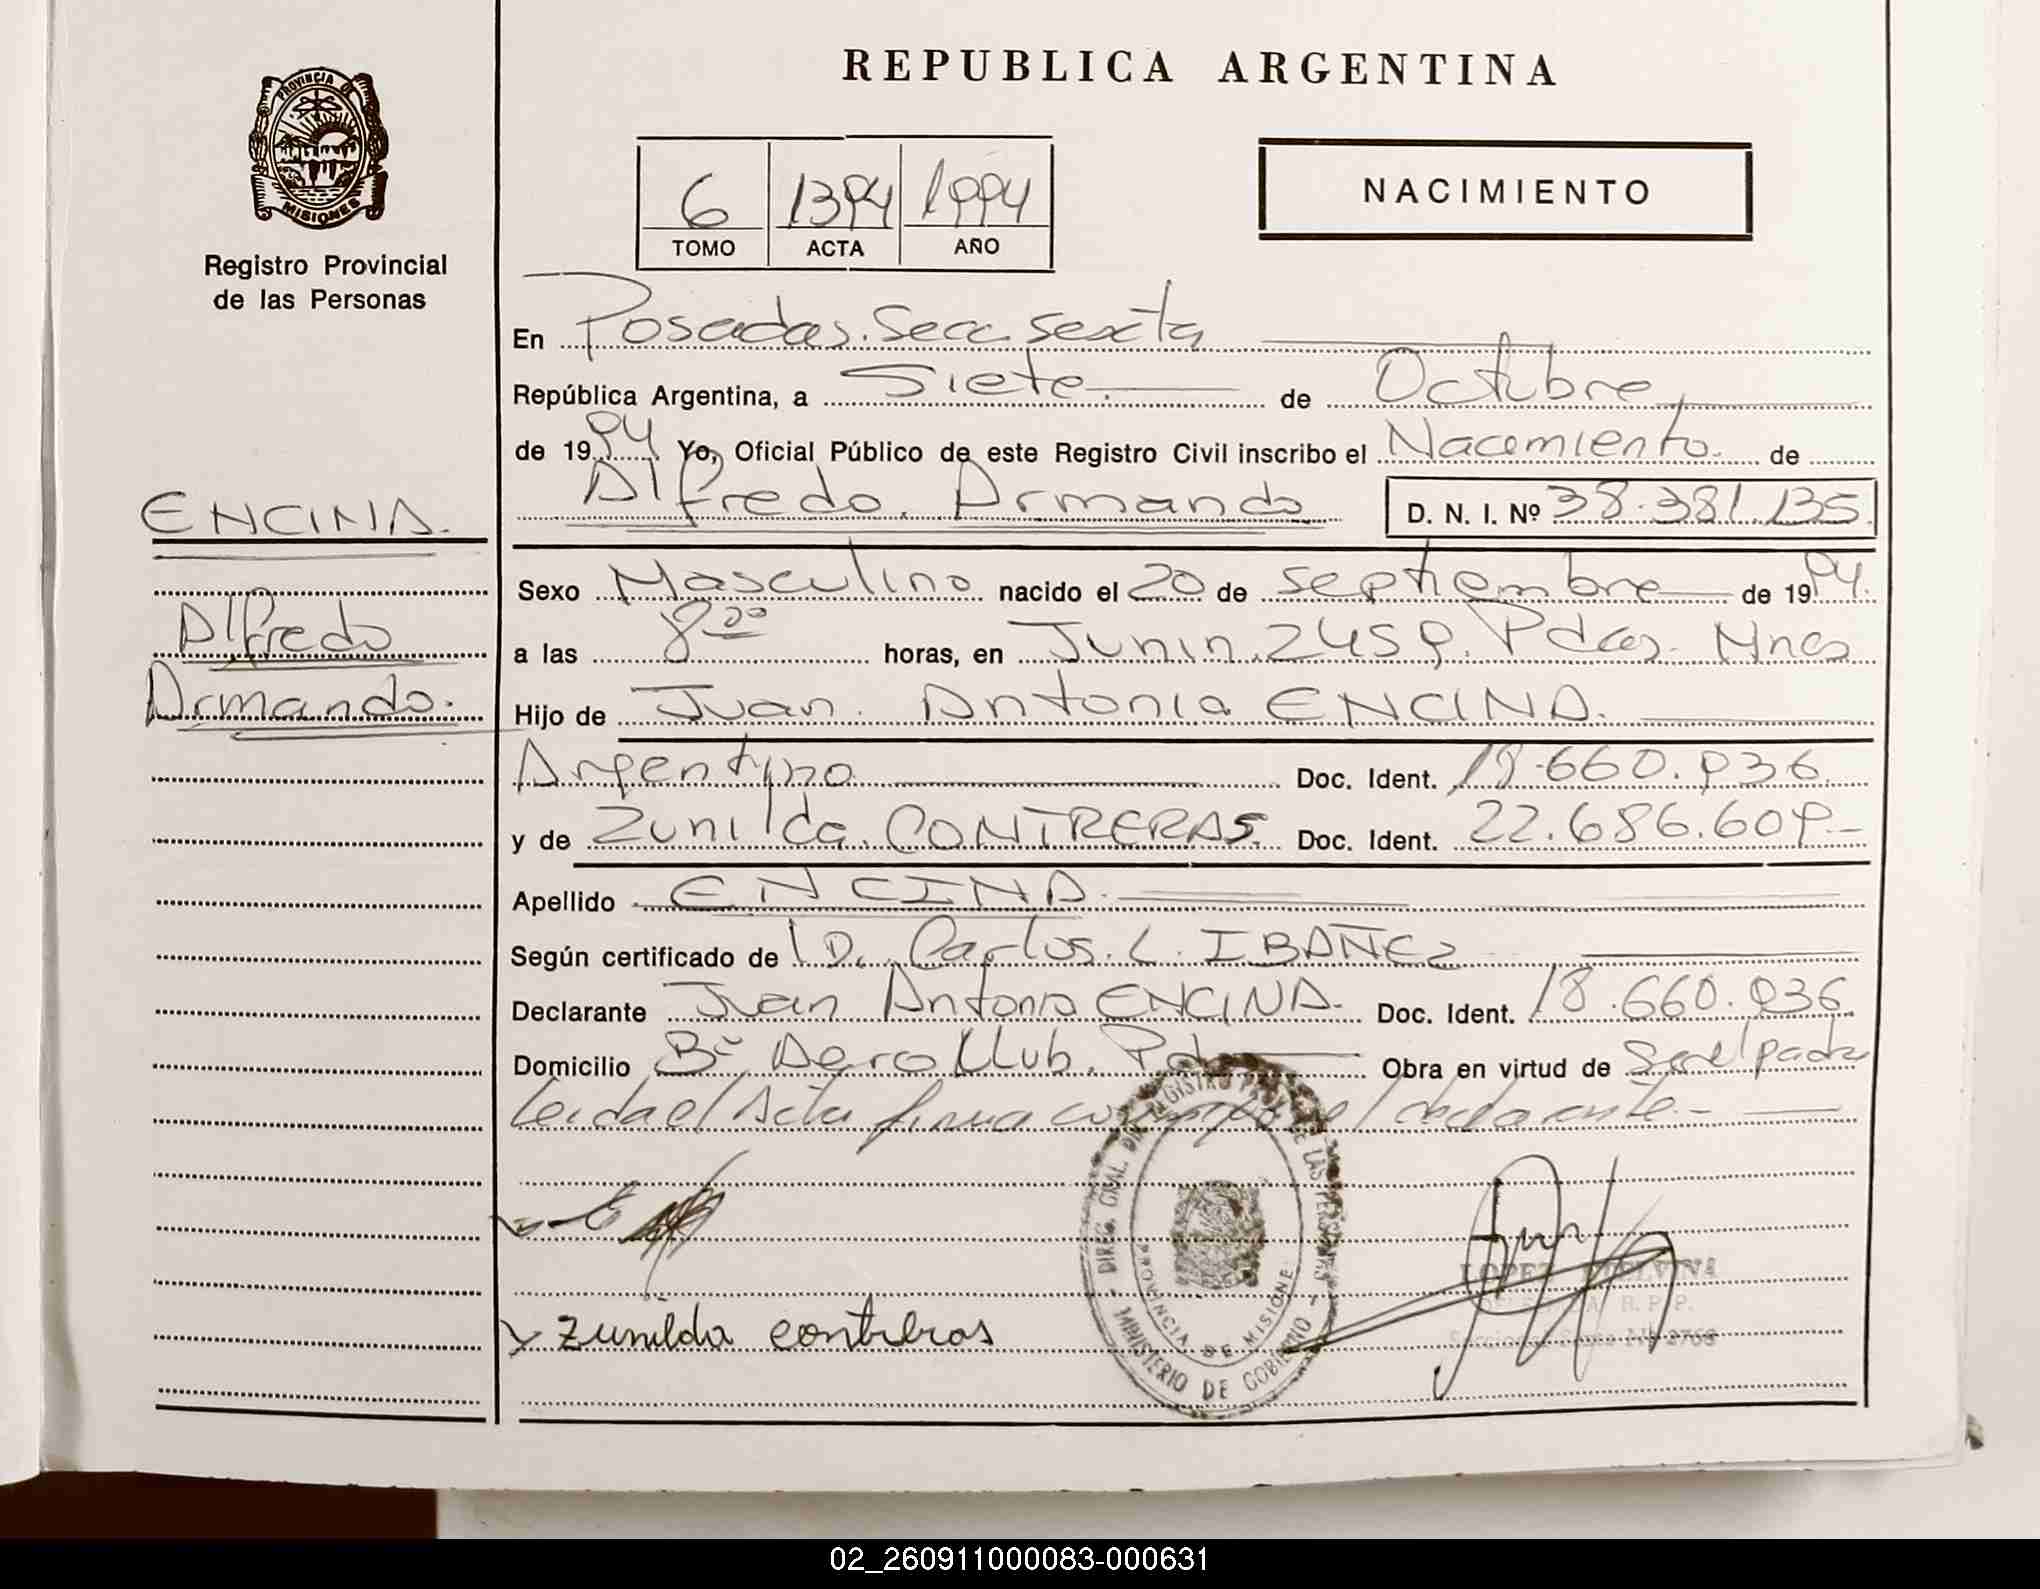 REPUBLICA ARGENTINA
PROVINCIA DE
MISIONES
Registro Provincial
de las Personas
6 1394 1994
TOMO ACTA AÑO
NACIMIENTO
En Posadas. Secc. Sexta
República Argentina, a Siete de Octubre
de 1994 Yo, Oficial Público de este Registro Civil inscribo el Nacimiento de
Alfredo Armando D. N. I. Nº 38.381.135
ENCINA.
Alfredo
Armando.
Sexo Masculino nacido el 20 de septiembre de 1994.
a las 8 00 horas, en Junin 2459. Pdas. Mnes
Hijo de Juan Antonio ENCINA.
Argentino Doc. Ident. 18.660.936
y de Zunilda CONTRERAS. Doc. Ident. 22.686.609-
Apellido ENCINA
Según certificado de D. Carlos L. IBAÑEZ
Declarante Juan Antonio ENCINA. Doc. Ident. 18.660.936
Domicilio Bº Aero Club. Obra en virtud de Ser el padre
Leida el Acta firma el declarante.-
Zunilda contreras
DIREC. GRAL. DEL REGISTRO PROV. DE LAS PERSONAS
PROVINCIA DE MISIONES
MINISTERIO DE GOBIERNO
LOPEZ
R. P. P.
2768
02_260911000083-000631